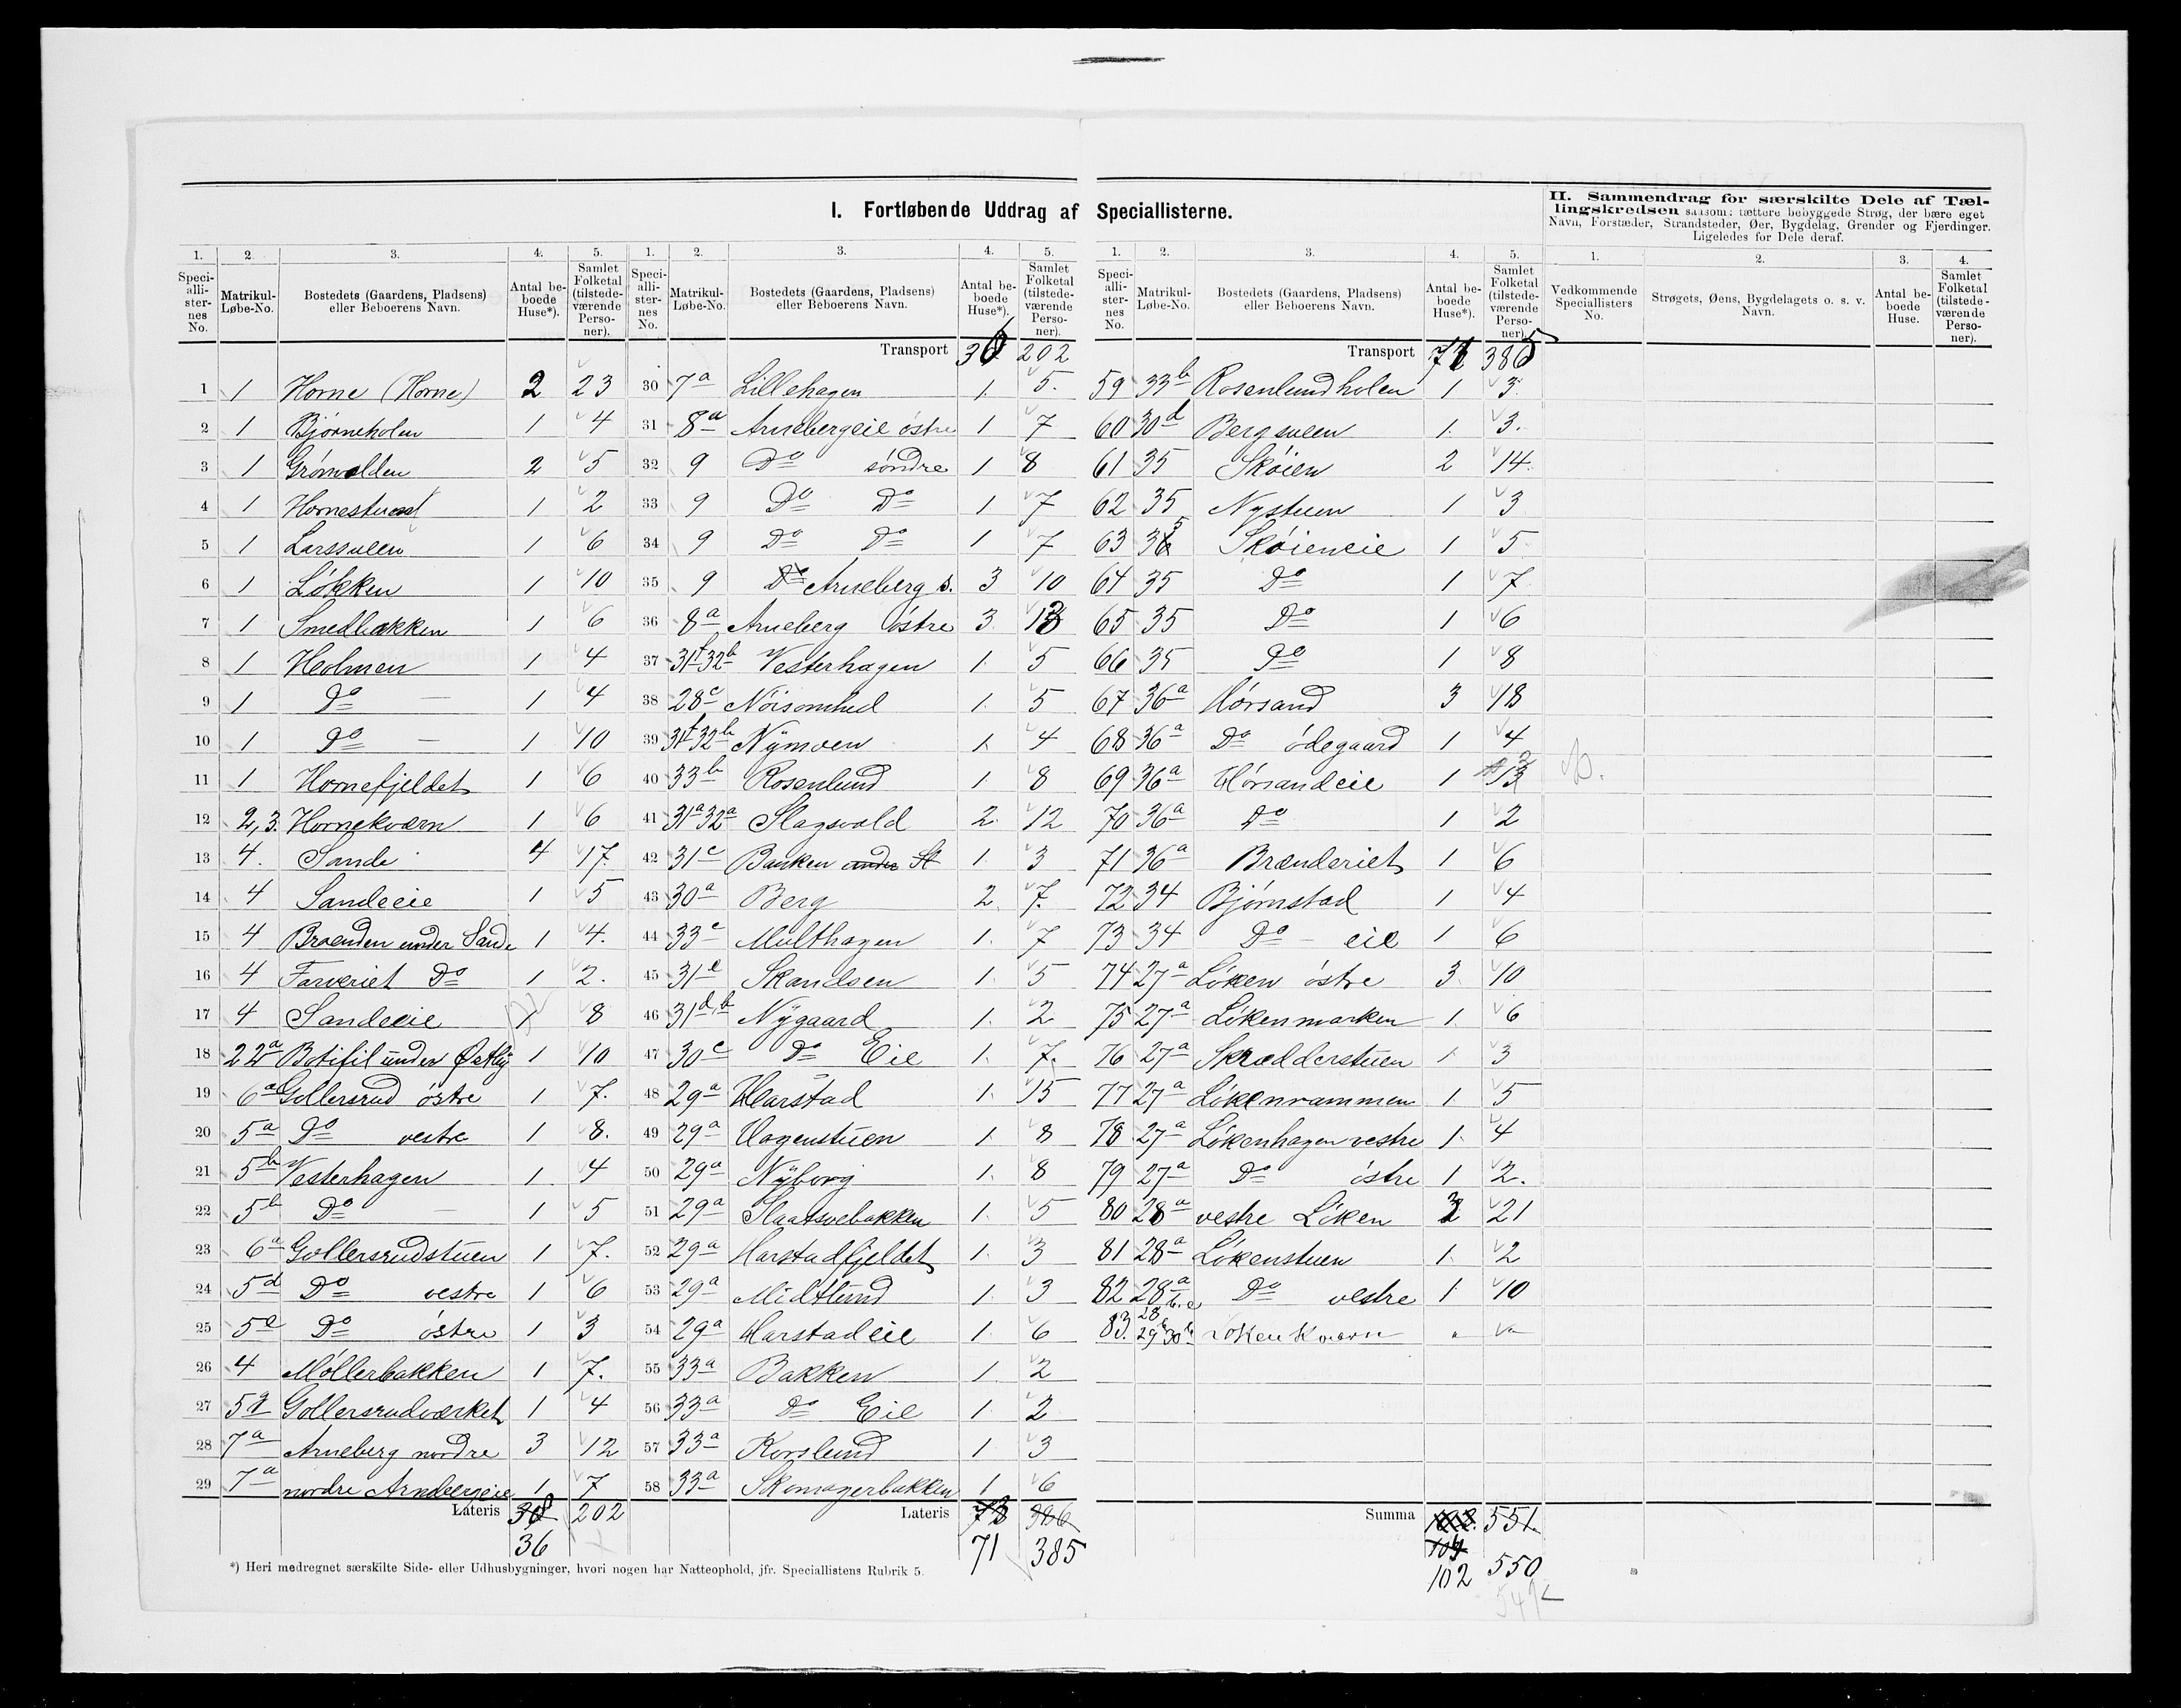 I. Fortløbende Uddrag af Speciallisterne.
II. Sammendrag for særskilte Dele af Tællingskredsen saasom: tættere bebyggede Strøg, der bære eget Navn, Forstæder, Strandsteder, Øer, Bygdelag, Grender og Fjerdinger. Ligeledes for Dele deraf.
1. 2. 3. 4. 5.
Speciallisternes No. Matrikul-Løbe-No. Bostedets (Gaardens, Pladsen) eller Beboerens Navn. Antal beboede Huse*). Samlet Folketal (tilstedeværende Personer).
1 1 Horne (Horne) 2 23
2 1 Bjørneholen 1 4
3 1 Grønvolden 2 5
4 1 1 2
5 1 Larssveen 1 6
6 1 Løkken 1 10
7 1 Smedbakken 1 6
8 1 Holmen 1 4
9 1 Do — 1 4
10 1 Do — 1 10
11 1 Hornefjeldet 1 6
12 2, 3. Hornekværn 1 6
13 4. Sande 4 17.
14 4 Sandeeie 1 5
15 4 Braenden under Sande 1 4.
16 4 Farveriet Do 1 2.
17 4 Sandeeie 8
18 22a Botifil under Østby 1 10
19 6a Gollersrud østre 1 7.
20 5a Do vestre 1 8.
21 5b Vesterhagen 1 4
22 5b Do — 1 5
23 6a Gollersrudstuen 1 7.
24 5d Do vestre 1 6
25 5e Do østre 1 3
26 4 Møllerbakken 1 7.
27 Gollersrudværket 1 4
28 7a Arneberg nordre 3 12
29 7a nordre Arnebergeie 1 7
Lateris 38 202
36
1. 2. 3. 4. 5.
Speciallisternes No. Matrikul-Løbe-No. Bostedets (Gaardens, Pladsen) eller Beboerens Navn. Antal beboede Huse*). Samlet Folketal (tilstedeværende Personer).
Transport 36 202
30 7a Lillehagen 1. 5.
31 8a Arnebergeie østre 1 7
32 9 Do søndre 1 8
33 9 Do Do 1 7
34 9 Do Do 1 7
35 9 Do Arneberg s. 3 10
36 8a Arneberg østre 3 13
37 31f 32b Vesterhagen 1. 5
38 28c Nøisomhed 1. 5
39 31f 32b Nymoen 1. 4
40 33b Rosenlund 1 8
41 31a 32a Slagsvold 2. 12
42 31c Banken under St 1. 3
43 30a Berg 2. 7.
44 33c Multhagen 1. 7
45 31e Skandsen 1. 5
46 31d,b Nygaard 1. 2
47 30c Do Eie 1. 7.
48 29a Harstad 1. 15
49 29a Hagenstuen 1. 8
50 29a Nyborg 1. 8
51 29a Slaatsvebakken 1. 5
52 29a Harstadfjeldet 1. 3
53 29a Midtlund 1. 3
54 29a Harstadeie 1. 6
55 33a Bakken 1. 2
56 33a Do Eie 1. 2
57 33a Korslund 1 3
58 33a Skomagerbakken 1 6
Lateris 73 386
71 385
1. 2. 3. 4. 5.
Speciallisternes No. Matrikul-Løbe-No. Bostedets (Gaardens, Pladsen) eller Beboerens Navn. Antal beboede Huse*). Samlet Folketal (tilstedeværende Personer).
Transport 71 385
59 33b Rosenlundholen 1 3
60 30d Bergsveen 1. 3.
61 35 Skøien 2 14.
62 35 Nystuen 1 3
63 35 Skøieneie 1 5
64 35 Do 1 7
65 35 Do 1 6
66 35 Do 1 8
67 36a Hørsand 3 18
68 36a Do ødegaard 1 4
69 36a Hørsandeie 1 13
70 36a Do 1 2
71 36a Brænderiet 1 6
72 34 Bjørnstad 1 4
73 34 Do — eie 1 6
74 27a Løken østre 3. 10
75 27a Løkenmarken 1. 6
76 27a Skrædderstuen 1 3
77 27a Løkenrammen 1 5
78 27a Løkenhagen vestre 1. 4
79 27a Do østre 1 2.
80 28a vestre Løken 3 21
81 28a Løkenstuen 1. 2
82 28a Do vestre 1. 10
83. Løken Kværn " "
Summa 551.
104
102 550
549
1. 2. 3. 4.
Vedkommende Speciallisters No. Strøgets, Øens, Bygdelagets o. s. v. Navn. Antal beboede Huse. Samlet Folketal (tilstedeværende Personer).
*) Heri medregnet særskilte Side- eller Udhusbygninger, hvori nogen har Natteophold, jfr. Speciallistens Rubrik 5.